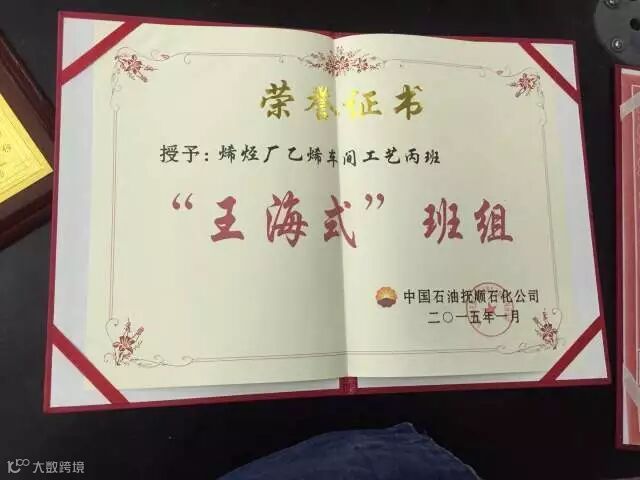 荣誉证书
授予：烯烃厂乙烯车间工艺丙班
“王海式”班组
中国石油抚顺石化公司
二〇一五年一月
大数跨境